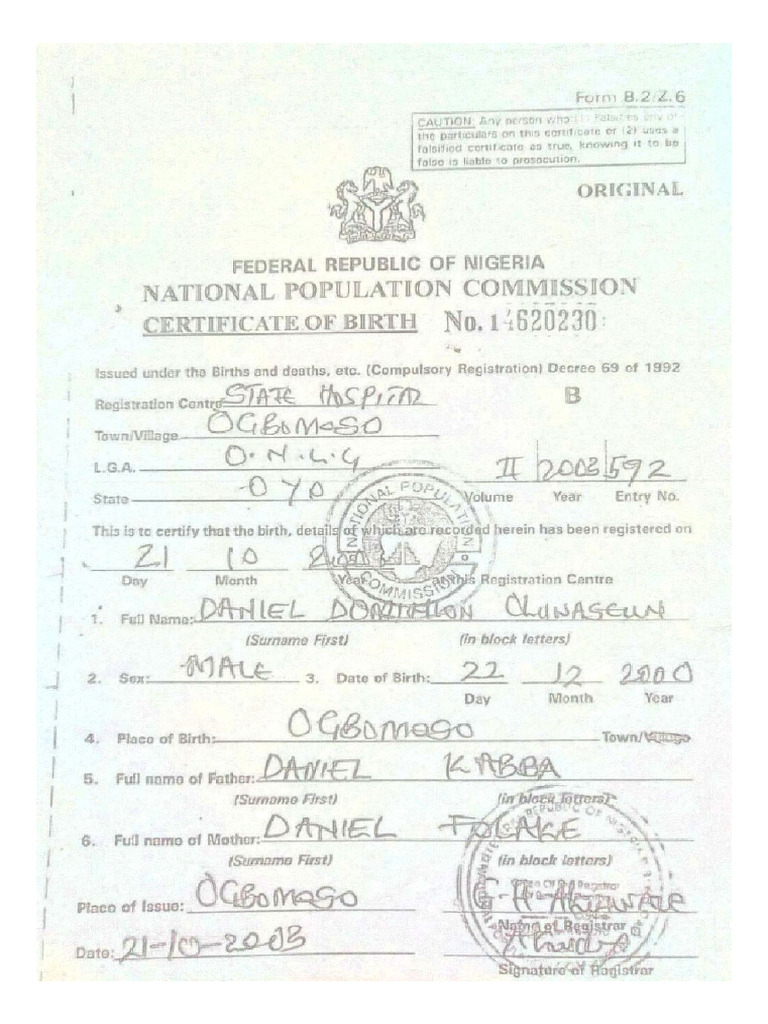 Form B.2/Z.6
CAUTION: Any person who (1) Falsifies any of
the particulars on this certificate or (2) uses a
falsified certificate as true, knowing it to be
false is liable to prosecution.
ORIGINAL
FEDERAL REPUBLIC OF NIGERIA
NATIONAL POPULATION COMMISSION
CERTIFICATE OF BIRTH No. 14620230
Issued under the Births and deaths, etc. (Compulsory Registration) Decree 69 of 1992
Registration Centre STATE HOSPITAL B
Town/Village OGBOMOSO
L.G.A. O.N.L.G II 2003 592
State OYO Volume Year Entry No.
This is to certify that the birth, details of which are recorded herein has been registered on
21 10
Day Month Year at this Registration Centre
1. Full Name: DANIEL DOMINION OLUWASEUN
(Surname First) (in block letters)
2. Sex: MALE 3. Date of Birth: 22 12 2000
Day Month Year
4. Place of Birth: OGBOMOSO Town/Village
5. Full name of Father: DANIEL KABBA
(Surname First) (in block letters)
6. Full name of Mother: DANIEL FOLAKE
(Surname First) (in block letters)
Place of Issue: OGBOMOSO
Name of Registrar
Date: 21-10-2003
Signature of Registrar
NATIONAL POPULATION COMMISSION